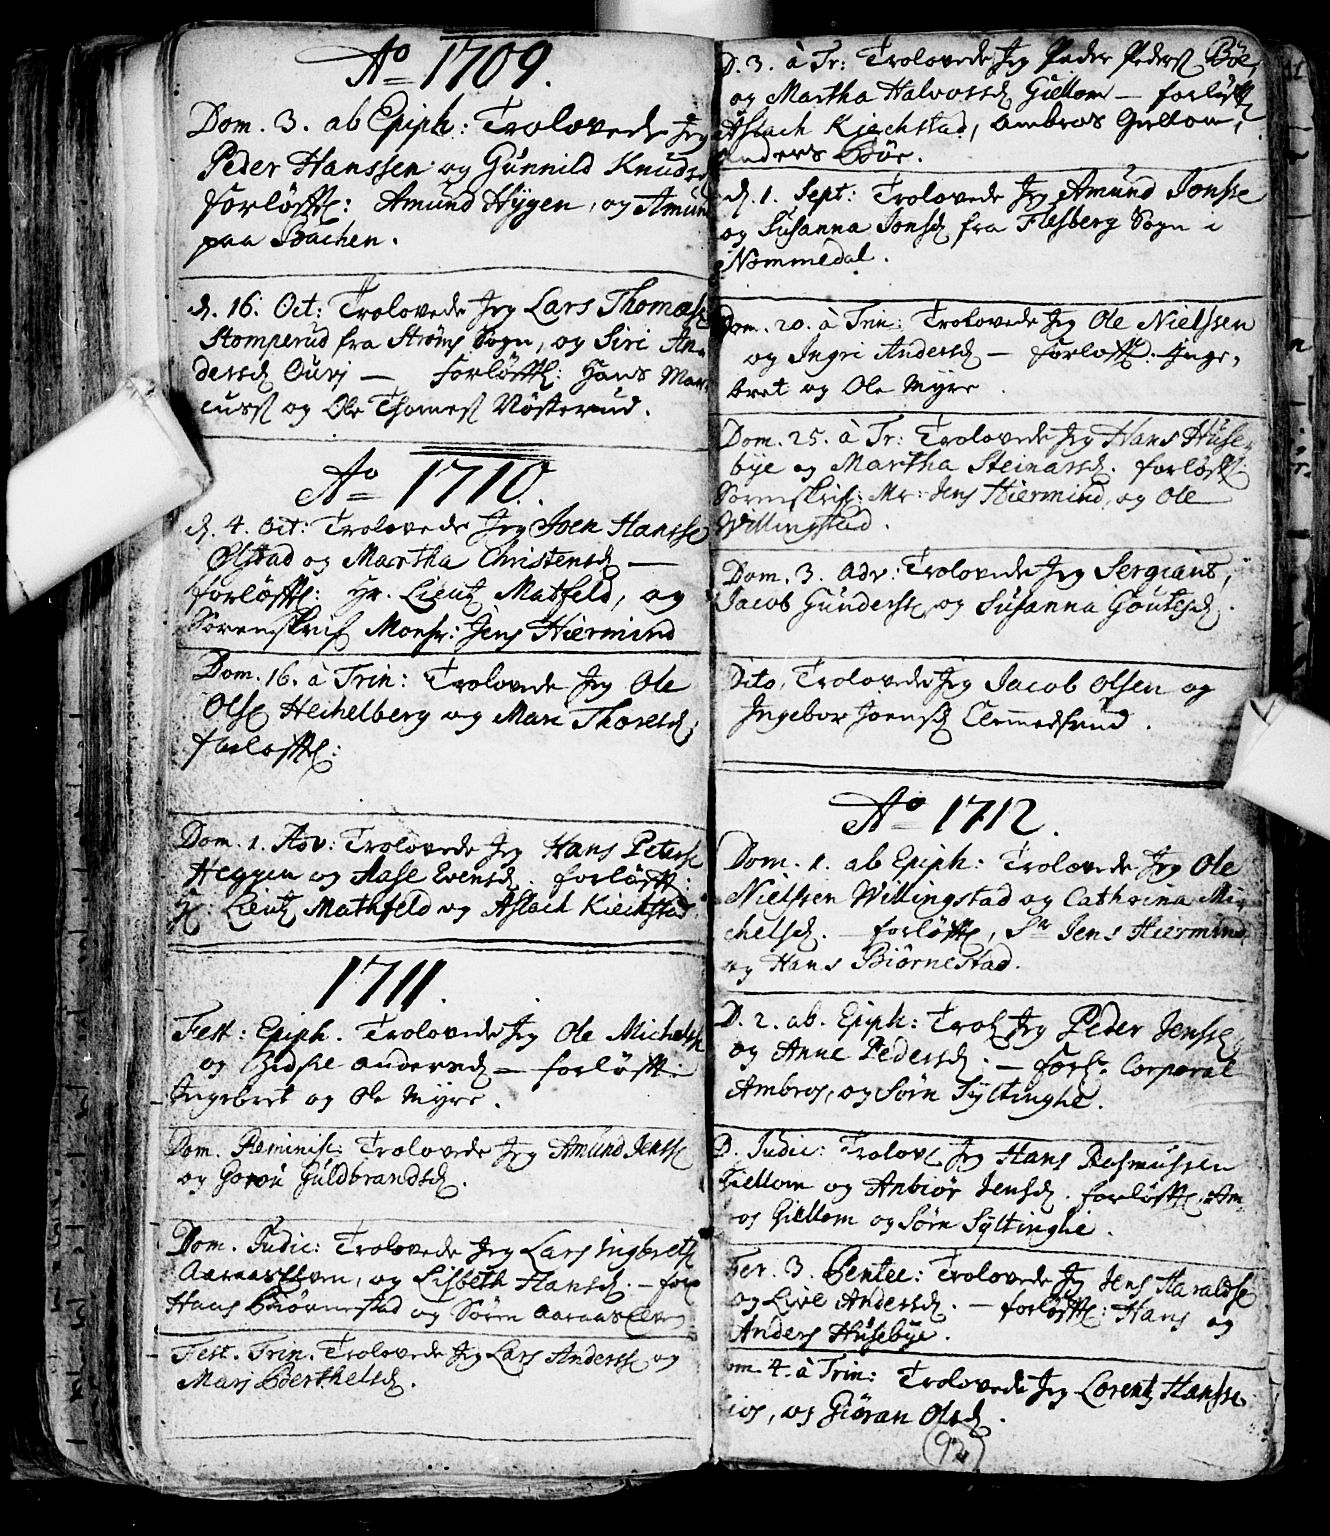 Ao 1709.
Dom. 3. ab Epiph: Trolovede Jeg
Peder Hanssen og Gunnild Knuds
forløfft: Amund Hÿgen, og Amun
paa Bachen.
d. 16. Oct: Trolovede Jeg Lars Thomæs
Stomperud fra Strøms Sogn, og Siri An-
dersd Ourj — forløfft: Hans Mar
cuss og Ole Thomes Nösterud.
Ao 1710.
d. 4. Oct: Trolovede Jeg Joen Hansse
Ølstad og Martha Christensd —
forløfft: Hr. Lieut Matfeld, og
Sorenskrif Monsr: Jens Hiermind
Dom. 16. à Trin: Trolovede Jeg Ole
Olse Hechelberg og Mari Thoresd,
forløfft:
Dom. 1. Adv: Trolovede Jeg Hans Peterse
Heggen og Aase Evensd. forløfft:
Hr: Lieut Mathfeld og Aslach Kiechstad
1711.
Fest: Epiph. Trolovede Jeg Ole Michelss
og Zidsle andersd — forløfft:
Ingebret og Ole Myre.
Dom. Reminisc: Trolovede Jeg Amund Jenss
og Goron Guldbrandsd.
Dom. Judic: Trolovede Jeg Lars Ingbrets
Aaraasteen, og Lisbeth Hansd. — forl
Hans Biörnestad og Sören Aaraasteen
Fest. Trin. Trolovede Jeg Lars Anderss og
Marj Berthelsd.
D. 3. à Tr: Trolovede Jeg Peder Peders Böe,
og Martha Halvorsd Giellom — forløfft
Aslach Kiechstad, Ambros Giellom,
Anders Böe.
d. 1. Sept: Trolovede Jeg Amund Jonsse
og Susanna Jonsd fra Flesberg Sogn i
Nommedal.
Dom. 20. à Trin: Trolovede Jeg Ole Nielssen
og Ingri Andersd — forløfft: Inge-
bret og Ole Myre.
Dom. 25. à Tr: Trolovede Jeg Hans Huse-
bye og Martha Steinarsd. forløfft
Sorenskrif: Mr: Jens Hiermind, og Ole
Willingstad.
Dom. 3. Adv: Trolovede Jeg Sergiant,
Jacob Gunders og Susanna Goutesd.
Dito, Trolovede Jeg Jacob Olsen og
Ingebor Joensd Clemmedsrud.
Ao 1712.
Dom. 1. ab Epiph: Trolovede Jeg Ole
Nielssen Willingstad og Cathrina Mi-
chelsd. — forløfft, Sr Jens Hiermind
og Hans Biörnestad.
D. 2. ab. Epiph: Trol Jeg Peder Jensse,
og Anne Pedersd. — forl. Corporal
Ambros, og Sörn Sÿltinghe.
D. Judic: Trolov Jeg Hans Rasmussen
Giellom og Anbiör Jensd. forløfft, Am-
ros Giellom og Sörn Sÿltinghe.
Fer. 3. Pentec: Trolovede Jeg Jens Haralds
og Live Andersd. — forløfft: Hans og
Anders Husebÿe.
om. 4. à Trin: Trolovede Jeg Lorentz Hansse
og Giöran Olsd.
92